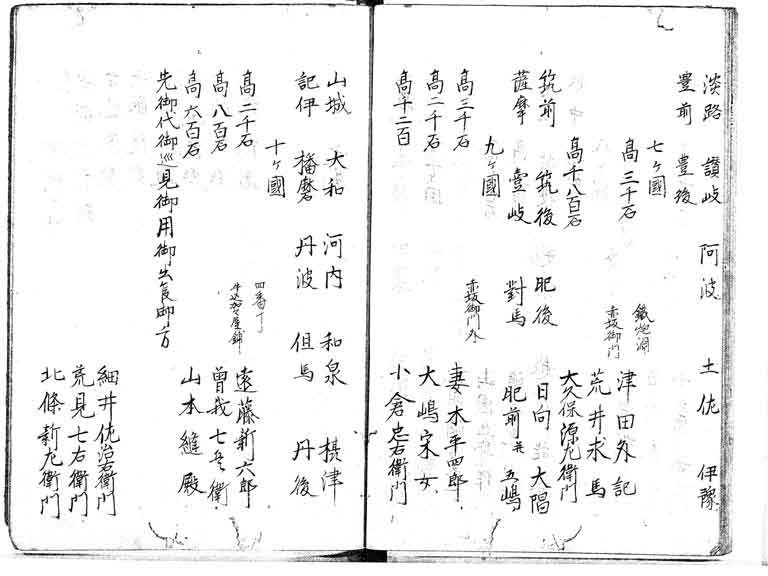 淡路 讃岐 阿波 土佐 伊豫
豊前 豊後
七ヶ國
高三千石 鐵炮洲 津田外記
赤坂御門 荒井求馬
高千八百石 大久保源左衛門
筑前 筑後 肥後 日向 大隅
薩摩 壹岐 對馬 肥前并五嶋
九ヶ國
高三千石 赤坂御門外 妻木平四郎
高二千石 大嶋宋女
高千二百 小倉忠右衛門
山城 大和 河内 和泉 摂津
記伊 播磨 丹波 但馬 丹後
十ヶ國
高二千石 四番丁 遠藤新六郎
高八百石 牛込加々屋鋪 曽我七兵衛
高六百石 山本縫殿
先御代御巡見御用御出被
細井佐治右衛門
荒見七右衛門
北條新左衛門